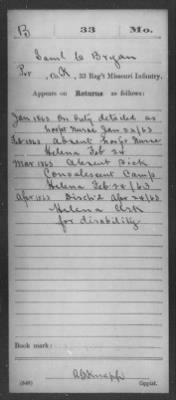 B 33 Mo.
Saml C Bryan
Pvt, Co. K, 33 Reg't Missouri Infantry.
Appears on Returns as follows:
Jan 1863 On Duty detailed as
Hosp'l Nurse Jan 22/63
Feb 1863 Absent Hosp'l Nurse
Helena Feb 24
Mar 1863 Absent Sick
Convalescent Camp
Helena Feb 24/63
Apr 1863 Disch'd Apr 24/63
Helena Ark
for disability
Book mark:
(546) Copyist.